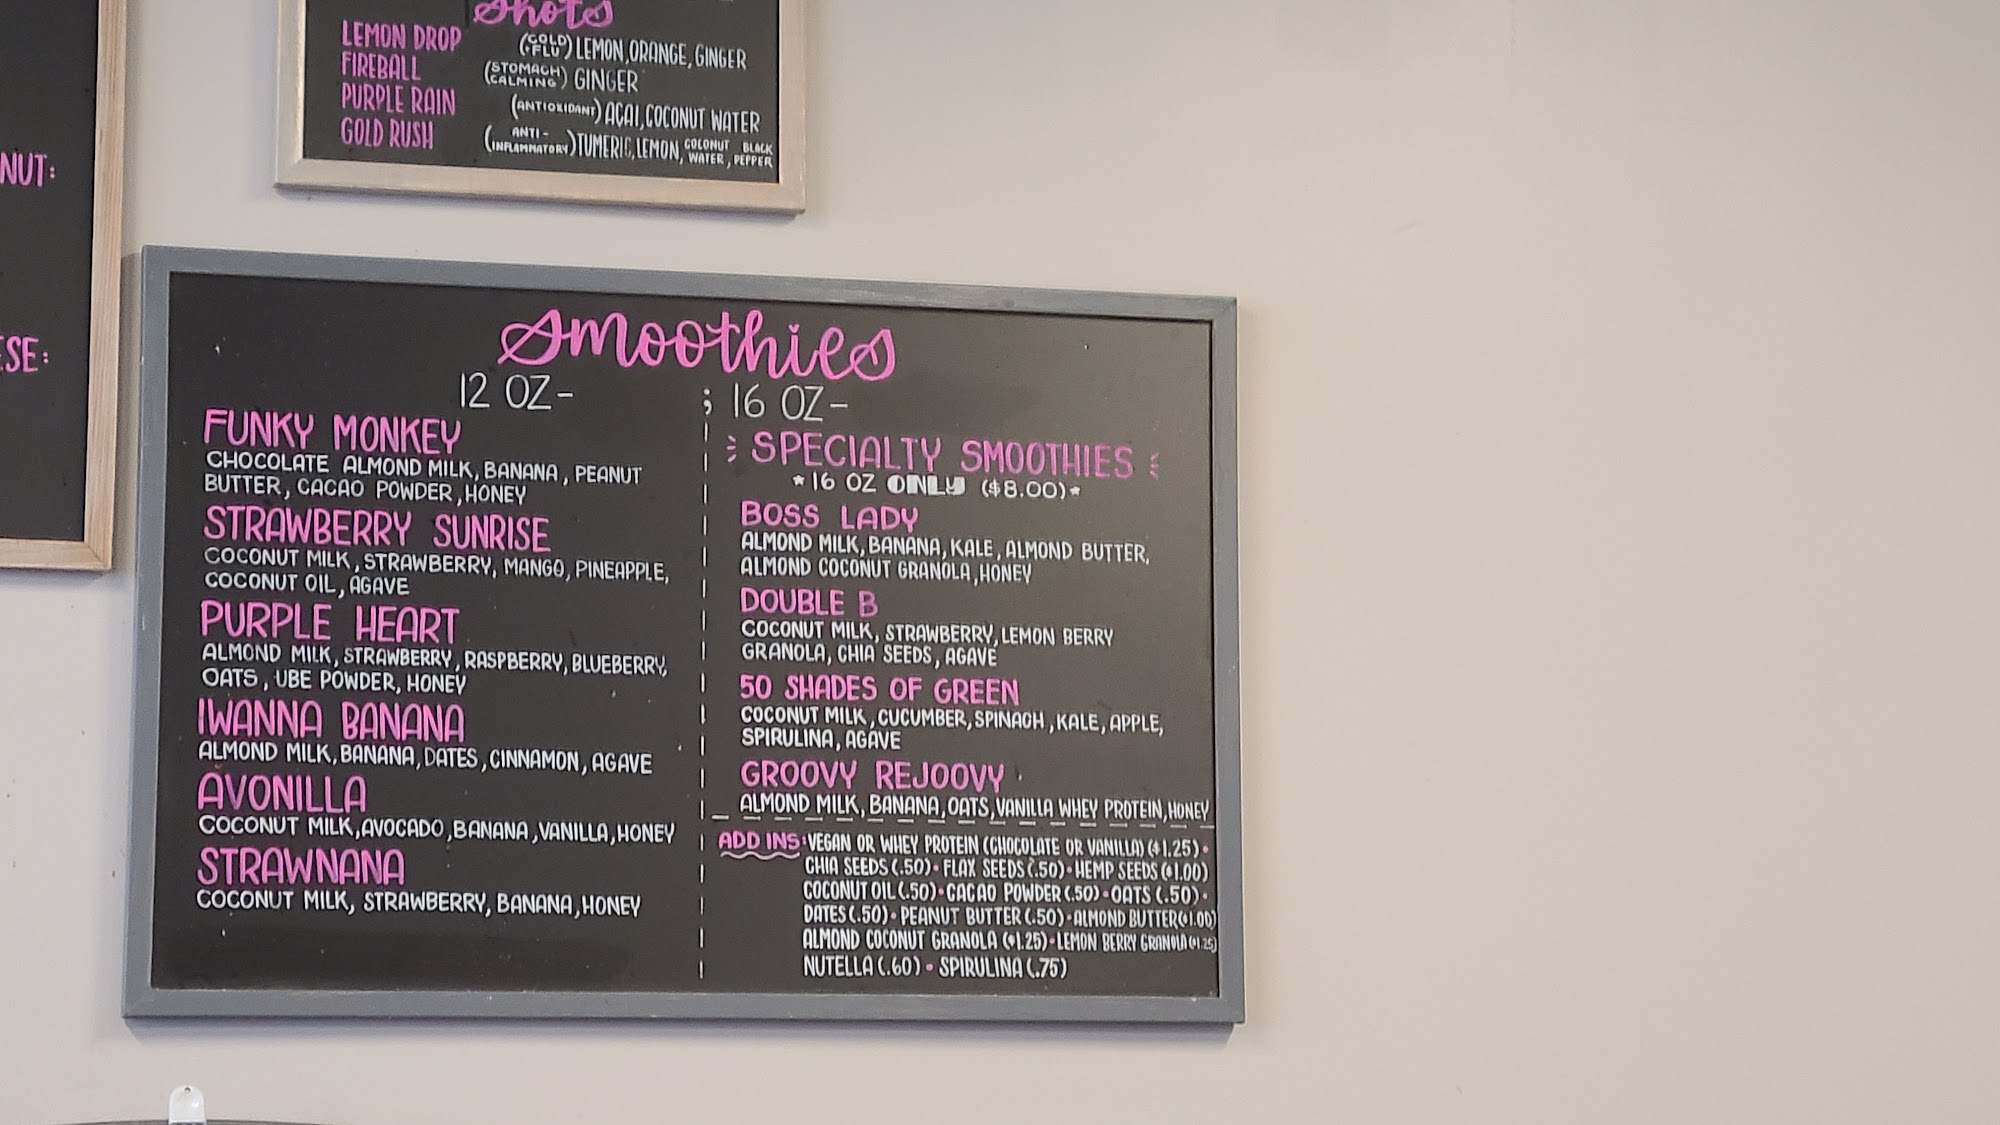 Shots
LEMON DROP (COLD + FLU) LEMON, ORANGE, GINGER
FIREBALL (STOMACH CALMING) GINGER
PURPLE RAIN (ANTIOXIDANT) AÇAI, COCONUT WATER
GOLD RUSH (ANTI-INFLAMMATORY) TUMERIC, LEMON, COCONUT WATER, BLACK PEPPER
NUT:
ESE:
Smoothies
12 OZ- ; 16 OZ-
FUNKY MONKEY
CHOCOLATE ALMOND MILK, BANANA, PEANUT
BUTTER, CACAO POWDER, HONEY
STRAWBERRY SUNRISE
COCONUT MILK, STRAWBERRY, MANGO, PINEAPPLE,
COCONUT OIL, AGAVE
PURPLE HEART
ALMOND MILK, STRAWBERRY, RASPBERRY, BLUEBERRY,
OATS, UBE POWDER, HONEY
IWANNA BANANA
ALMOND MILK, BANANA, DATES, CINNAMON, AGAVE
AVONILLA
COCONUT MILK, AVOCADO, BANANA, VANILLA, HONEY
STRAWNANA
COCONUT MILK, STRAWBERRY, BANANA, HONEY
SPECIALTY SMOOTHIES
*16 OZ ONLY ($8.00)*
BOSS LADY
ALMOND MILK, BANANA, KALE, ALMOND BUTTER,
ALMOND COCONUT GRANOLA, HONEY
DOUBLE B
COCONUT MILK, STRAWBERRY, LEMON BERRY
GRANOLA, CHIA SEEDS, AGAVE
50 SHADES OF GREEN
COCONUT MILK, CUCUMBER, SPINACH, KALE, APPLE,
SPIRULINA, AGAVE
GROOVY REJOOVY
ALMOND MILK, BANANA, OATS, VANILLA WHEY PROTEIN, HONEY
ADD INS: VEGAN OR WHEY PROTEIN (CHOCOLATE OR VANILLA) ($1.25) •
CHIA SEEDS (.50) • FLAX SEEDS (.50) • HEMP SEEDS ($1.00)
COCONUT OIL (.50) • CACAO POWDER (.50) • OATS (.50) •
DATES (.50) • PEANUT BUTTER (.50) • ALMOND BUTTER ($1.00)
ALMOND COCONUT GRANOLA ($1.25) • LEMON BERRY GRANOLA ($1.25)
NUTELLA (.60) • SPIRULINA (.75)